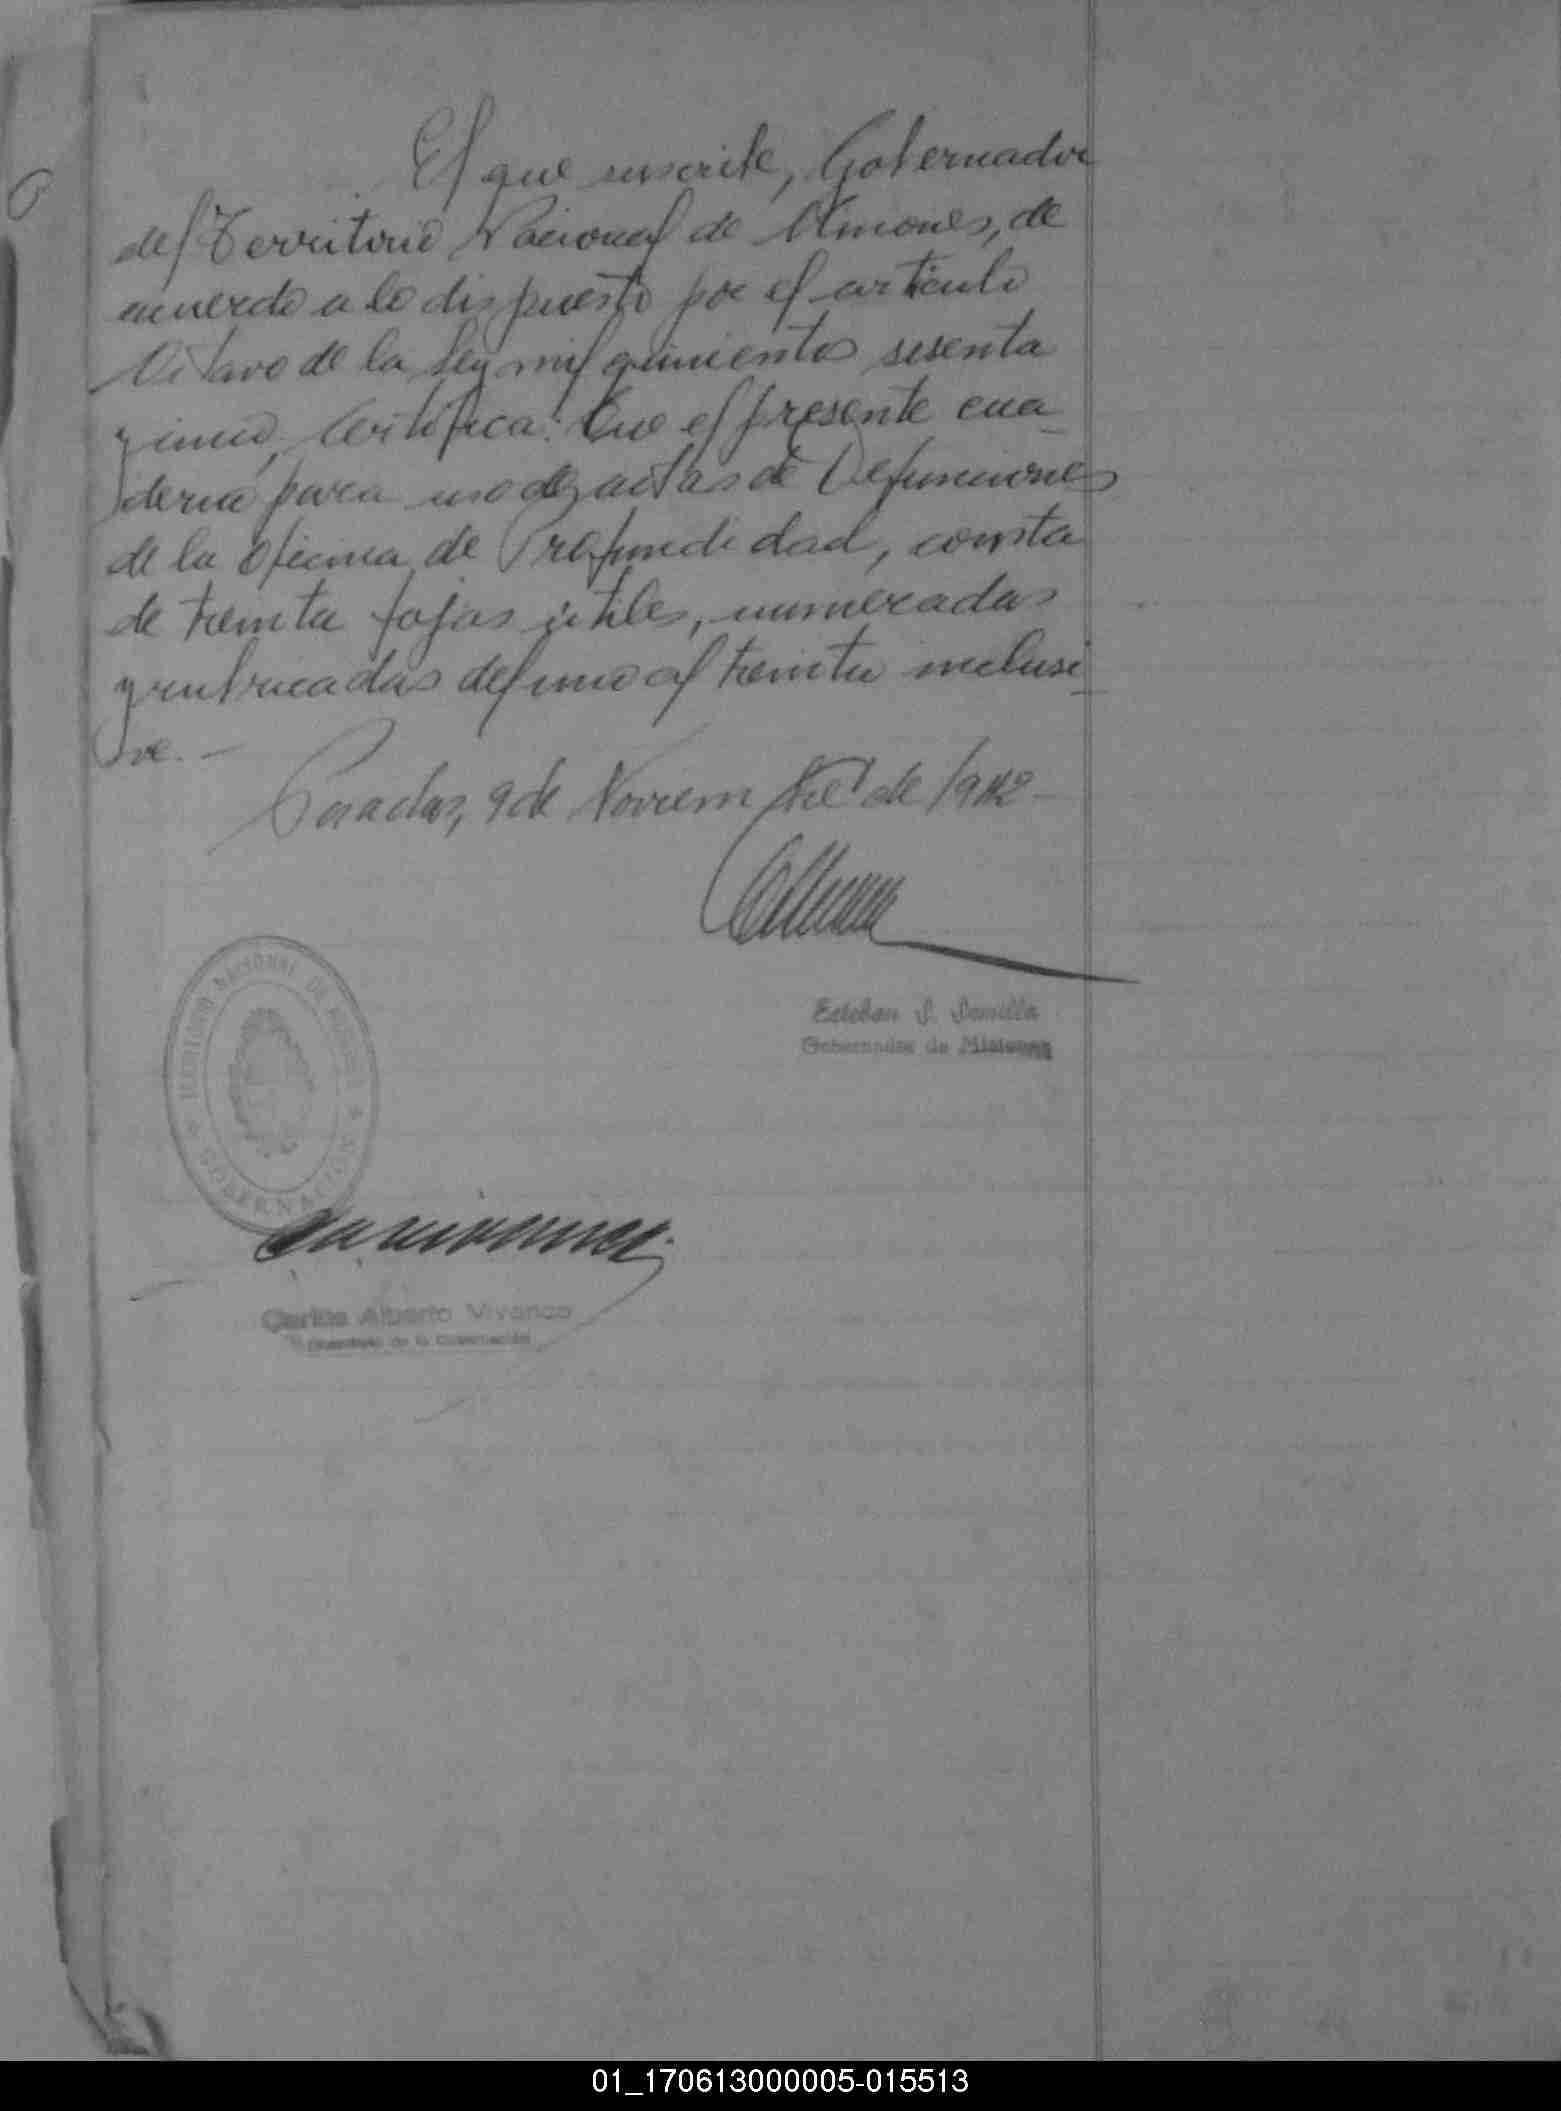 El que suscribe, Gobernador
del Territorio Nacional de Misiones, de
acuerdo a lo dispuesto por el artículo
Octavo de la Ley mil quinientos sesenta
y cinco, Certifica: Que el presente cua-
derno para uso de actas de Defunciones
de la oficina de Profundidad, consta
de treinta fojas útiles, numeradas
y rubricadas del uno al treinta inclusi-
ve.-
Posadas, 9 de Noviembre de 1942-
TERRITORIO NACIONAL DE MISIONES
GOBERNACION
Esteban S.
Gobernador de Misiones
Carlos Alberto Vivanco
de la Gobernación
01_170613000005-015513